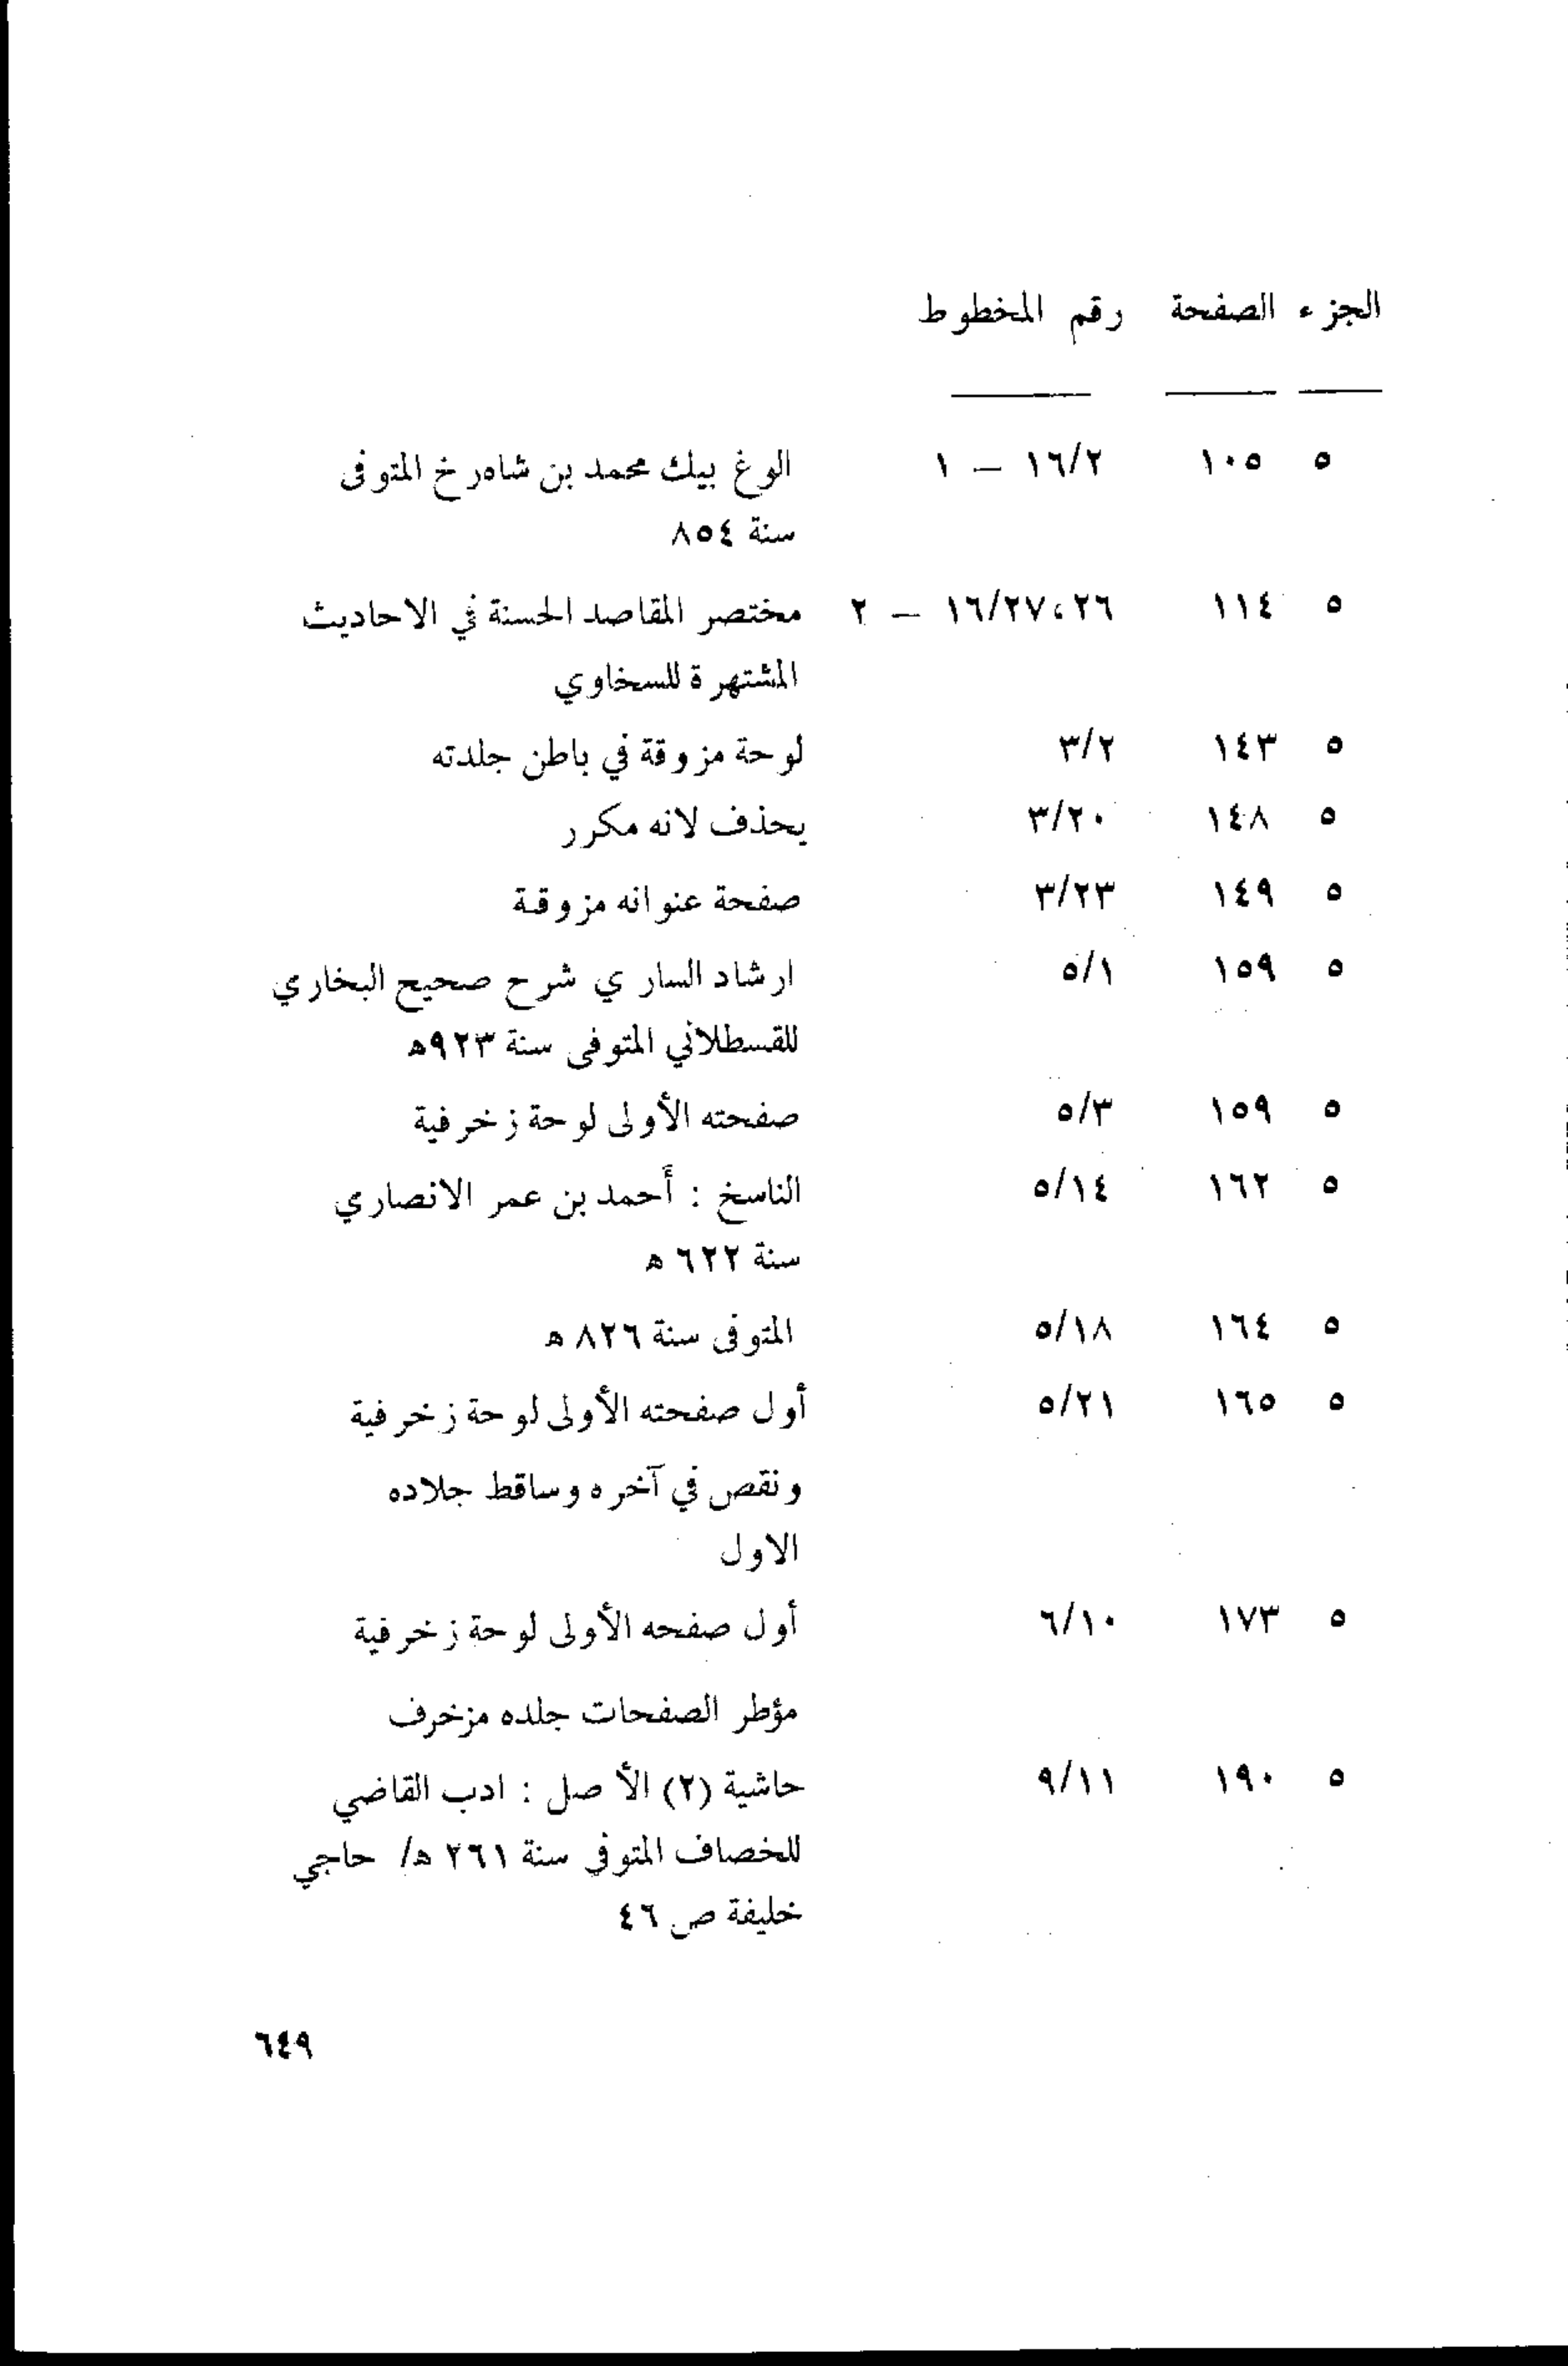 الجزء الصفحة رقم المخطوط
٥ ١٠٥ ١٦/٢ — ١ الوغ بيك محمد بن شاهرخ المتوفى
سنة ٨٥٤
٥ ١١٤ ١٦/٢٧،٢٦ — ٢ مختصر المقاصد الحسنة في الاحاديث
المشتهرة للسخاوي
٥ ١٤٣ ٣/٢ لوحة مزوقة في باطن جلدته
٥ ١٤٨ ٣/٢٠ يحذف لانه مكرر
٥ ١٤٩ ٣/٢٣ صفحة عنوانه مزوقة
٥ ١٥٩ ٥/١ ارشاد الساري شرح صحيح البخاري
للقسطلاني المتوفى سنة ٩٢٣ه
٥ ١٥٩ ٥/٣ صفحته الأولى لوحة زخرفية
٥ ١٦٢ ٥/١٤ الناسخ : أحمد بن عمر الانصاري
سنة ٦٢٢ ه
٥ ١٦٤ ٥/١٨ المتوفى سنة ٨٢٦ ه
٥ ١٦٥ ٥/٢١ أول صفحته الأولى لوحة زخرفية
ونقص في آخره وساقط جلاده
الاول
٥ ١٧٣ ٦/١٠ أول صفحه الأولى لوحة زخرفية
مؤطر الصفحات جلده مزخرف
٥ ١٩٠ ٩/١١ حاشية (٢) الأصل : ادب القاضي
للخصاف المتوفي سنة ٢٦١ ه/ حاجي
خليفة ص ٤٦
٦٤٩